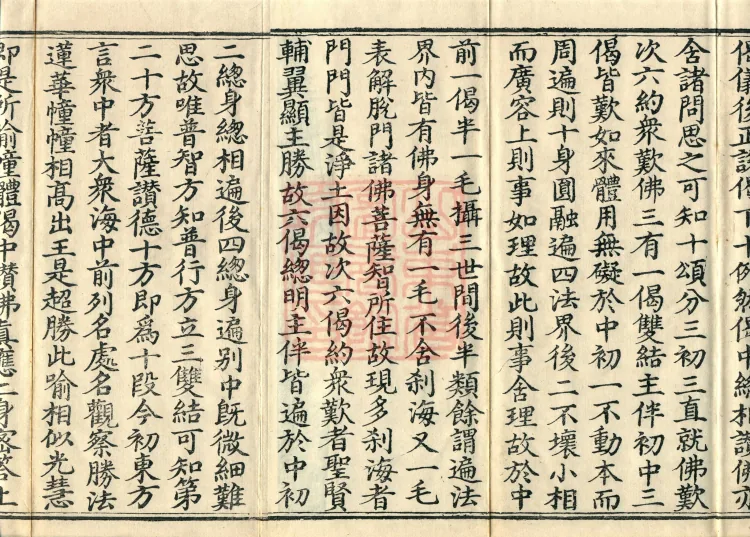 舍諸問思之可知十頌分三初三直就佛歎
次六約衆歎佛三有一偈雙結主伴初中三
偈皆歎如來體用無礙於中初一不動本而
周遍則十身圓融遍四法界後二不壞小相
而廣容上則事如理故此則事含理故於中
前一偈半一毛攝三世間後半類餘謂遍法
界内皆有佛身無有一毛不含刹海又一毛
表解脫門諸佛菩薩智所住故現多刹海者
門門皆是淨土因故次六偈約衆歎者聖賢
輔翼顯主勝故六偈總明主伴皆遍於中初
二總身總相遍後四總身遍别中既微細難
思故唯普智方知普行方立三雙結可知第
二十方菩薩讃德十方即爲十段今初東方
言衆中者大衆海中前列名處名觀察勝法
蓮華幢幢相高出王是超勝此喻相似光慧
即是所喻幢體偈中讃佛真應二身密答上